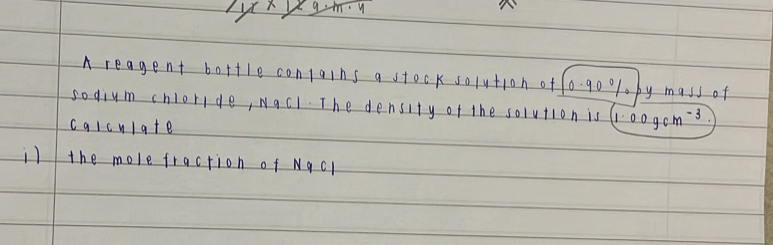 A reagent bottle contains a stock solution of 0.90% by mass of
sodium chloride, NaCl. The density of the solution is 1.00gcm⁻³.
Calculate
i) the mole fraction of NaCl